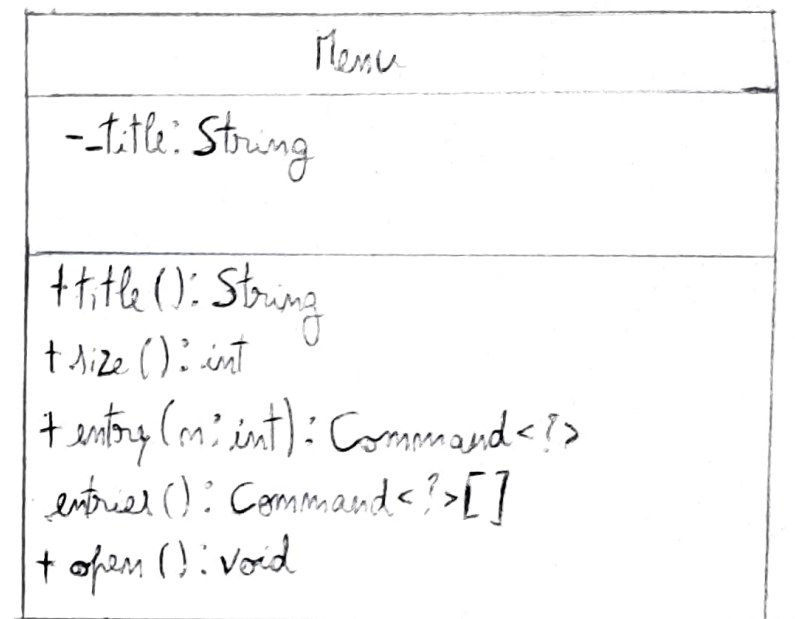 Menu
-_title: String
+title(): String
+size(): int
+entry(n: int): Command<?>
entries(): Command<?>[]
+open(): void